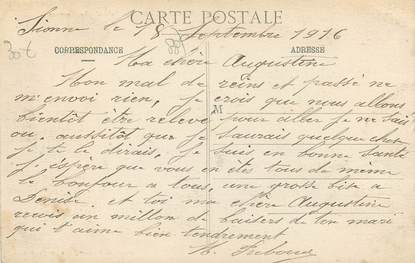 CARTE POSTALE
Sionne le 18 Septembre 1916
CORRESPONDANCE
ADRESSE
Ma chère Augustine
Mon mal de reins et passé ne
m'envoi rien, je crois que nous allons
bientôt être relevé pour aller je ne sai
ou, aussitôt que je saurais quelque chose
je te le dirais, je suis en bonne santé
j'éspère que vous en êtes tous de même
le bonjour a tous, une grosse bise a
Denise, et toi ma chère Augustine
recois un millon de baisers de ton mari
qui t'aime bien tendrement